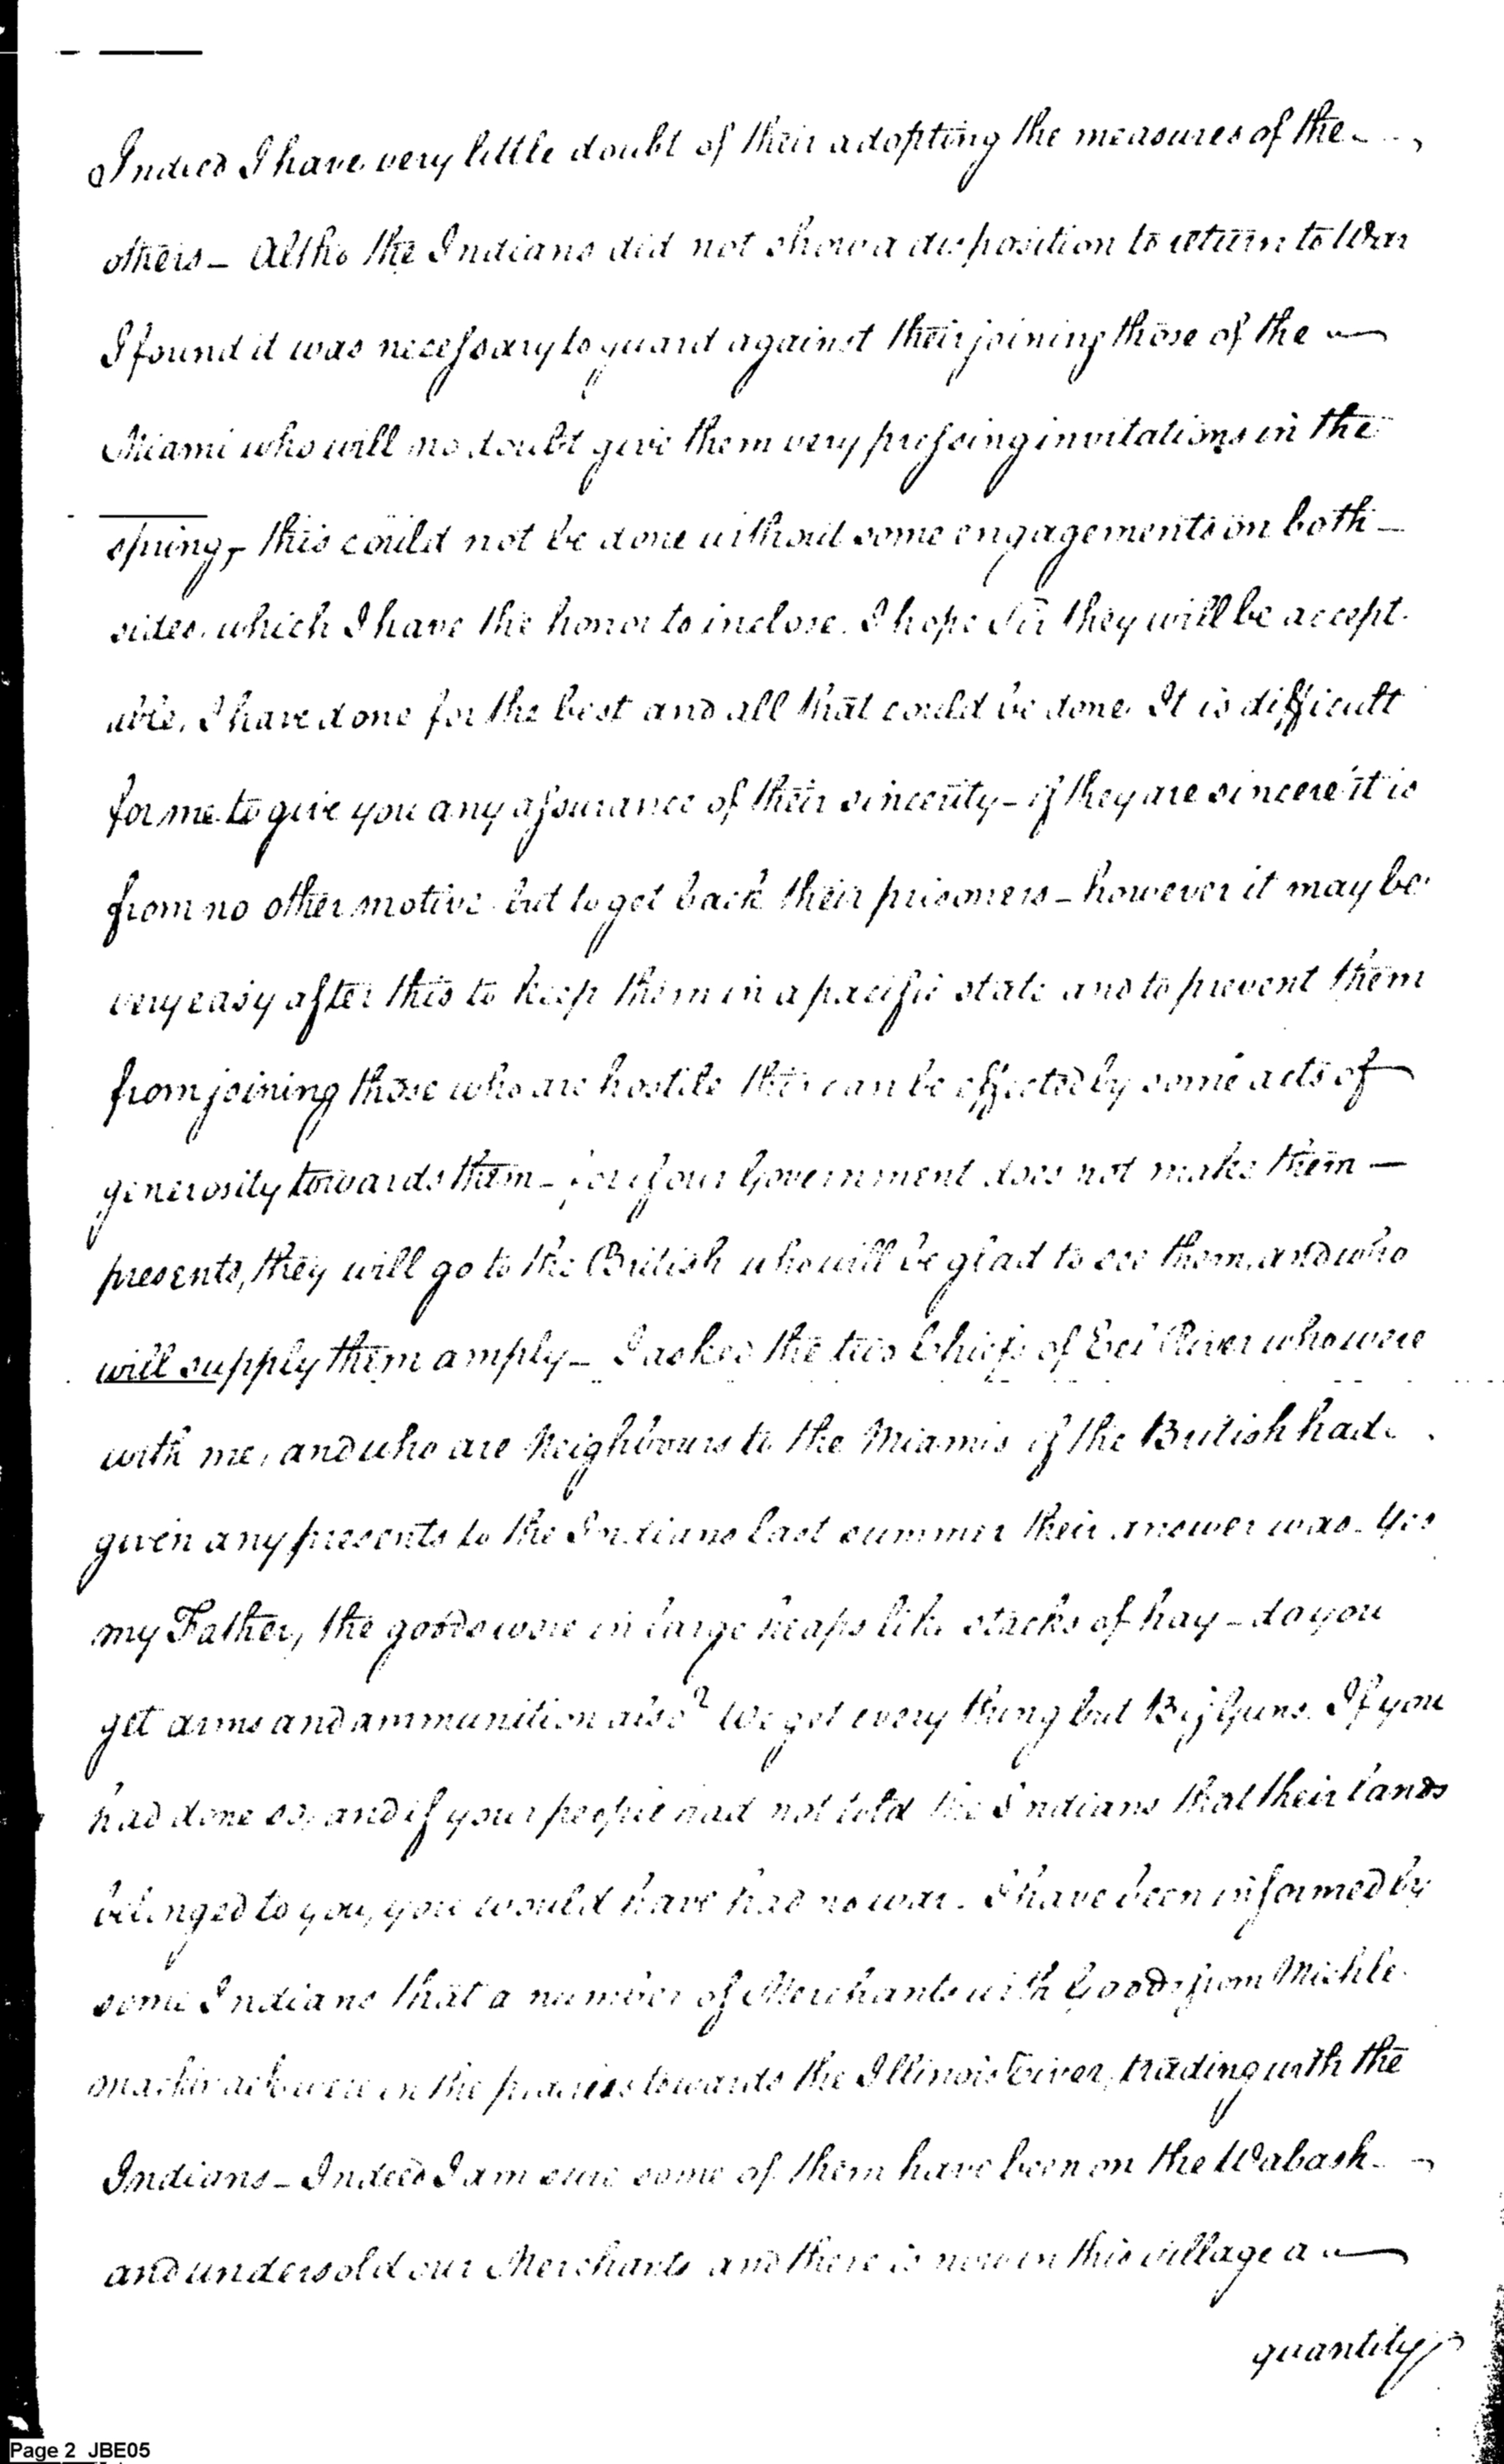 Indeed I have very little doubt of their adopting the measures of the
others - Altho the Indians did not show a disposition to return to War
I found it was necessary to guard against their joining those of the
Miami who will no doubt give them very pressing invitations in the
spring, this could not be done without some engagements on both -
sides. which I have the honor to inclose. I hope Sir they will be accept-
able, I have done for the best and all that could be done. It is difficult
for me to give you any assurance of their sincerity - if they are sincere it is
from no other motive but to get back their prisoners - however it may be
very easy after this to keep them in a pacific state and to prevent them
from joining those who are hostile this can be effected by some acts of
generosity towards them - for if our Government does not make them -
presents, they will go to the British who will be glad to see them, and who
will supply them amply - I asked the two Chiefs of Eel River who were
with me, and who are Neighbours to the Miamis if the British had
given any presents to the Indians last summer their answer was - Yes
my Father, the goods were in large heaps like stacks of hay - do you
get arms and ammunition also? We get every thing but Big Guns. If you
had done so, and if your people had not told the Indians that their lands
belonged to you, you would have had no war. I have been informed by
some Indians that a number of Merchants with Goods from Michle-
mackinack were in the prairies towards the Illinois River, trading with the
Indians - Indeed I am sure some of them have been on the Wabash -
and undersold our Merchants and there is now in this village a
quantity
Page 2 JBE05